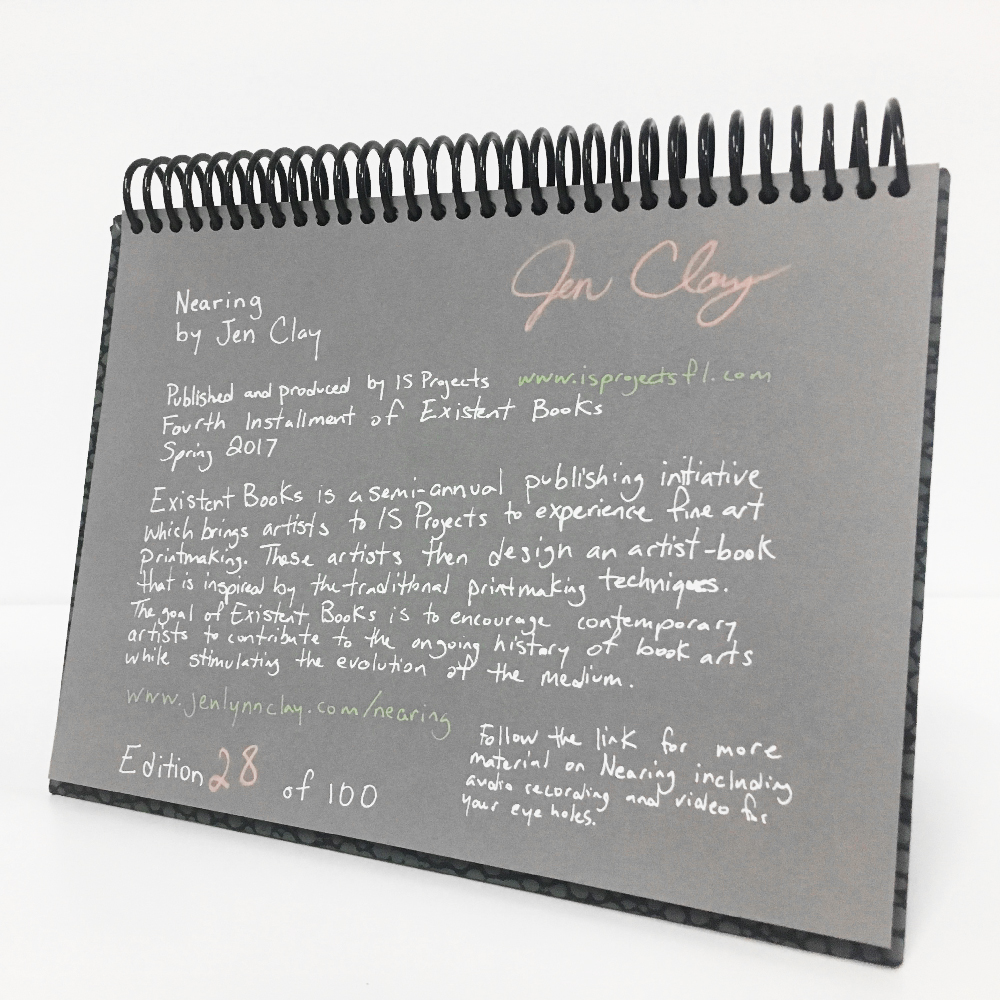 Jen Clay
Nearing
by Jen Clay
Published and produced by IS Projects www.isprojectsfl.com
Fourth Installment of Existent Books
Spring 2017
Existent Books is a semi-annual publishing initiative
which brings artists to IS Projects to experience fine art
printmaking. These artists then design an artist-book
that is inspired by the traditional printmaking techniques.
The goal of Existent Books is to encourage contemporary
artists to contribute to the ongoing history of book arts
while stimulating the evolution of the medium.
www.jenlynnclay.com/nearing
Edition 28 of 100
Follow the link for more
material on Nearing including
audio recording and video for
your eye holes.